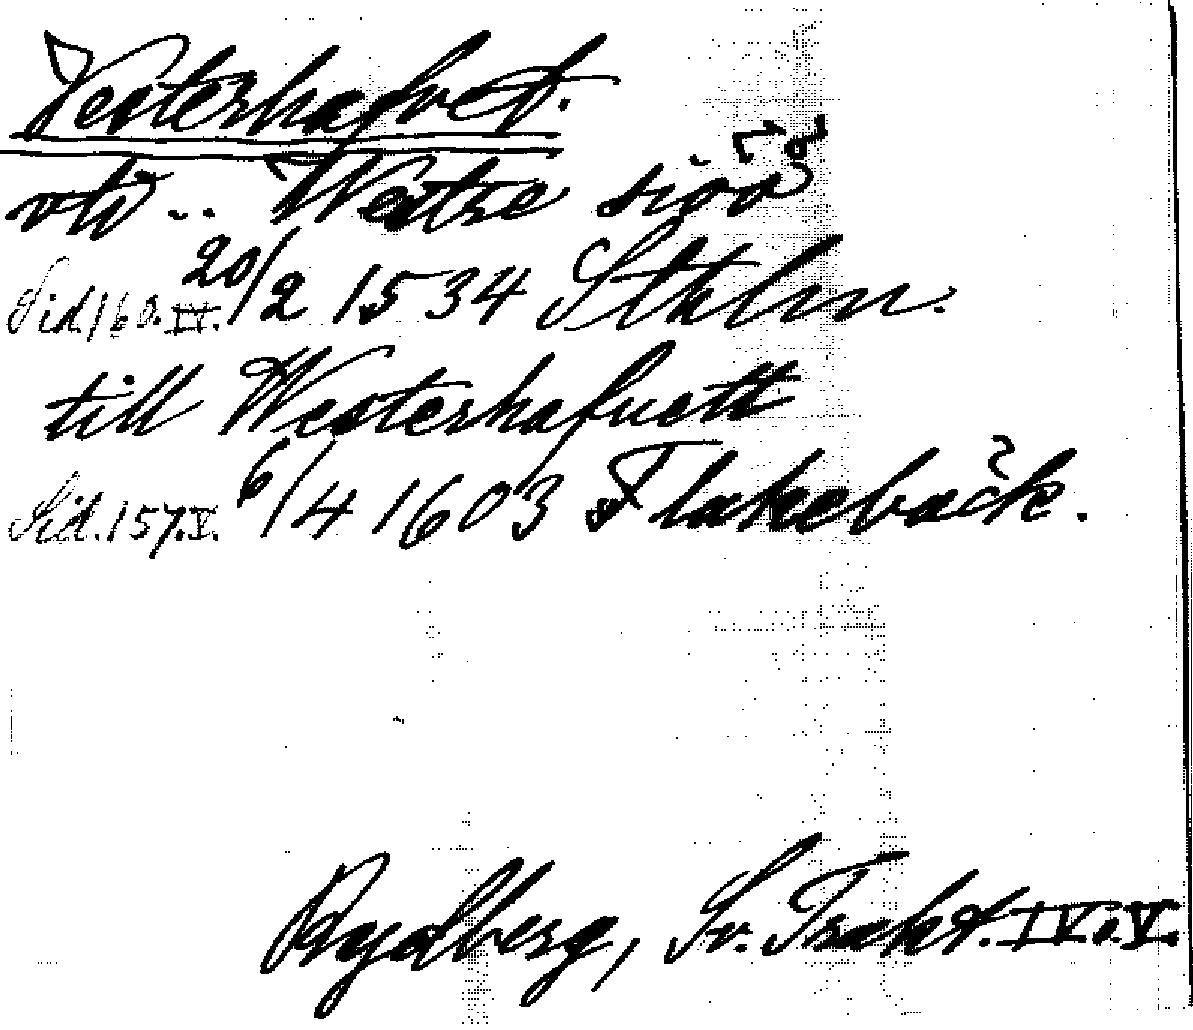 Vesterhafvet.
utü .. Westre siöö
Sid. 160. IV. 20/2 1534 Sthlm.
till Westerhafuett
Sid. 157. V. 6/4 1603 Flakebäck.
Rydberg, Sv. Trakt. IV o. V.